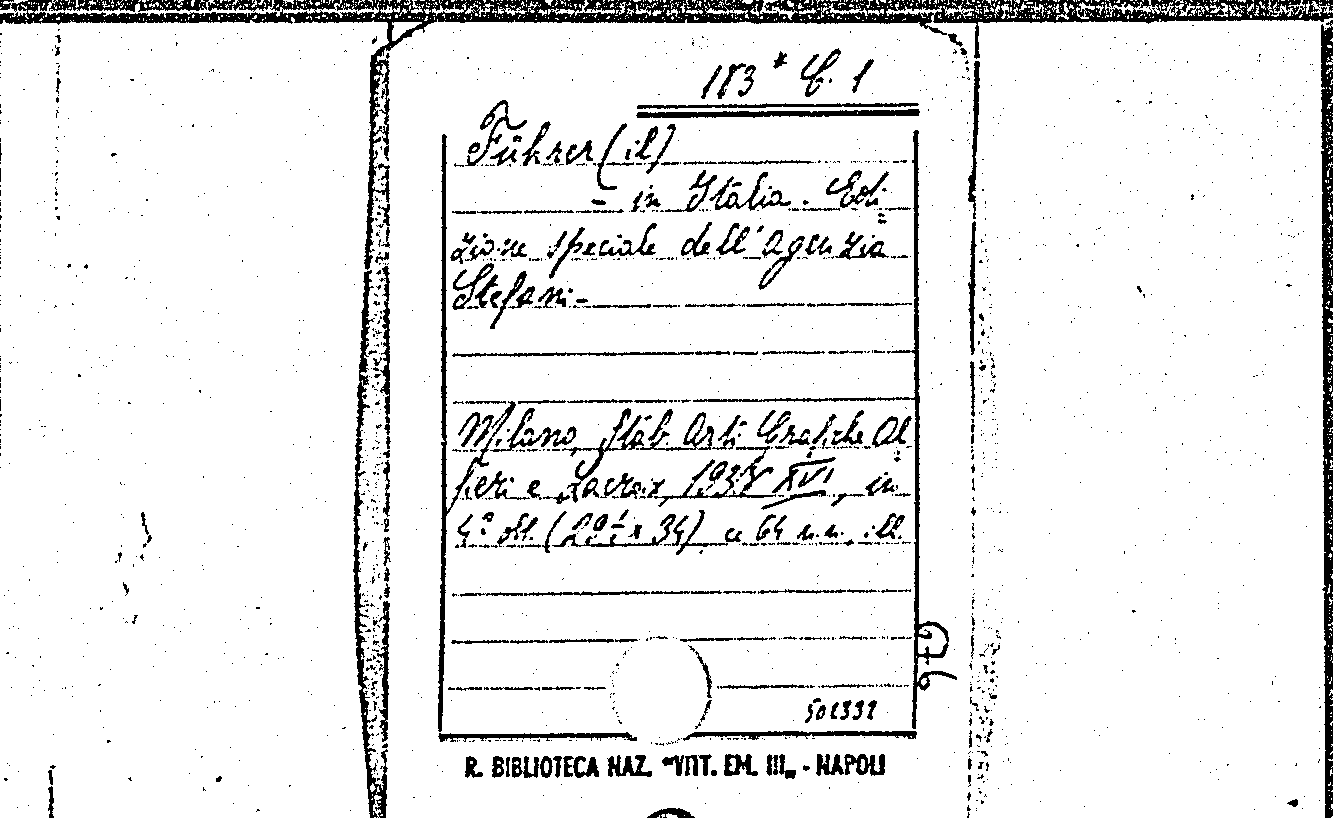 183* C. 1
Führer (il)
- in Italia. Edi=
zione speciale dell'Agenzia
Stefani-
Milano, Stab. Arti Grafiche Al=
fieri e Lacroix, 1938 XVI, in
4º obl. (29½ x 34) cc 64 n.n., ill.
501332
R. BIBLIOTECA NAZ. "VITT. EM. III„ - NAPOLI